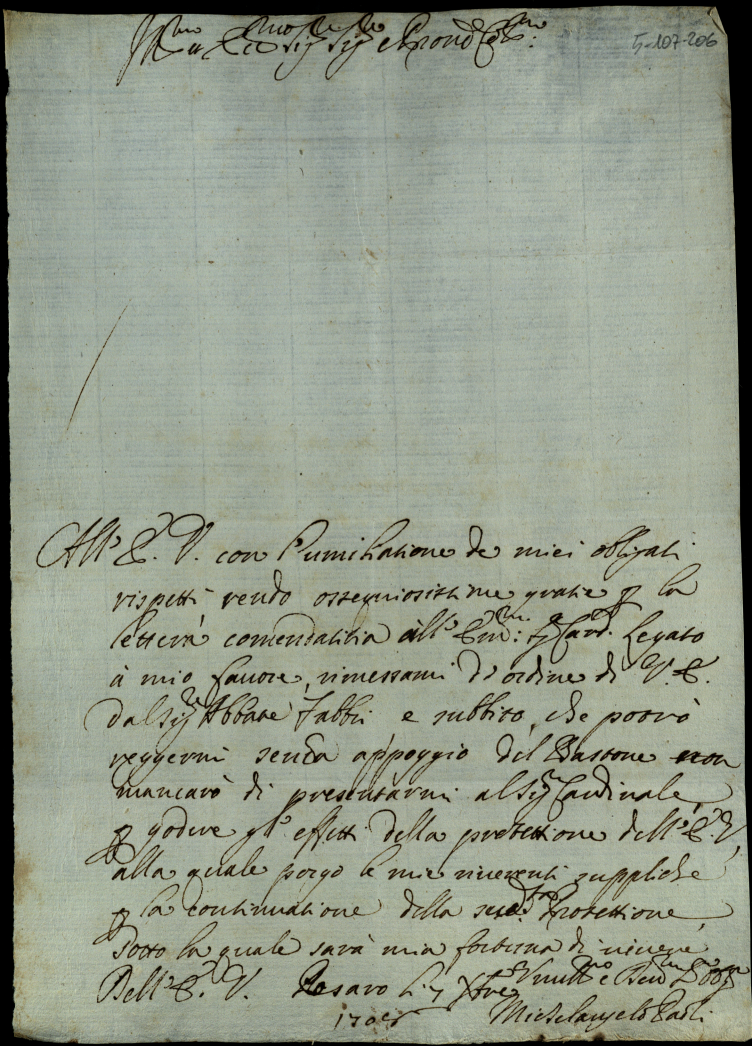 Ill.mo et Ecc.mo Sig.re Sig.re e Pron Col.mo
5-107-206
All' E. V. con l'umiliatione de miei obligati
rispetti rendo ossequiosissime gratie p la
lettera comendatitia all' Em.mo Sig. Card. Legato
à mio favore, rimessami d'ordine di V. E.
dal Sig.re Abbate Fabbri e subbito, che potrò
reggermi senza appoggio del Bastone non
mancarò di presentarmi al Sig.r Cardinale,
p godere gl' effetti della protettione dell' E. V.,
alla quale porgo le mie riverenti suppliche
p la continuatione della Protettione,
sotto la quale sarà mia fortuna di vivere
Dell' E. V. Pesaro li 7 Xbre
Michelangelo Paoli